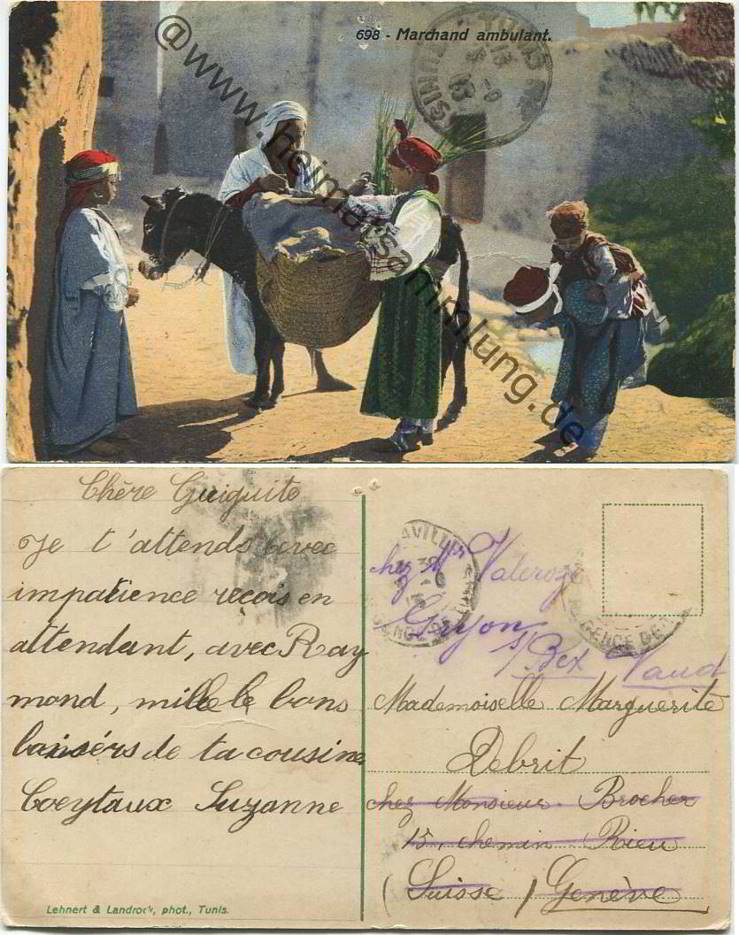 698 - Marchand ambulant.
TUNIS
@www.heimatsammlung.de
Chère Guiguite
Je t'attends avec
impatience reçois en
attendant, avec Ray
mond, mille bons
baisérs de ta cousine
Coeytaux Suzanne
Lehnert & Landrock, phot., Tunis.
chez Valerose
Gryon
s/Bex Vaud
Mademoiselle Marguerite
Debrit
chez Monsieur Brocher
15, chemin Rieu
(Suisse / Genève